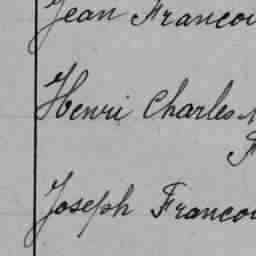 Jean Francoi
Henri Charles
Joseph Francoi